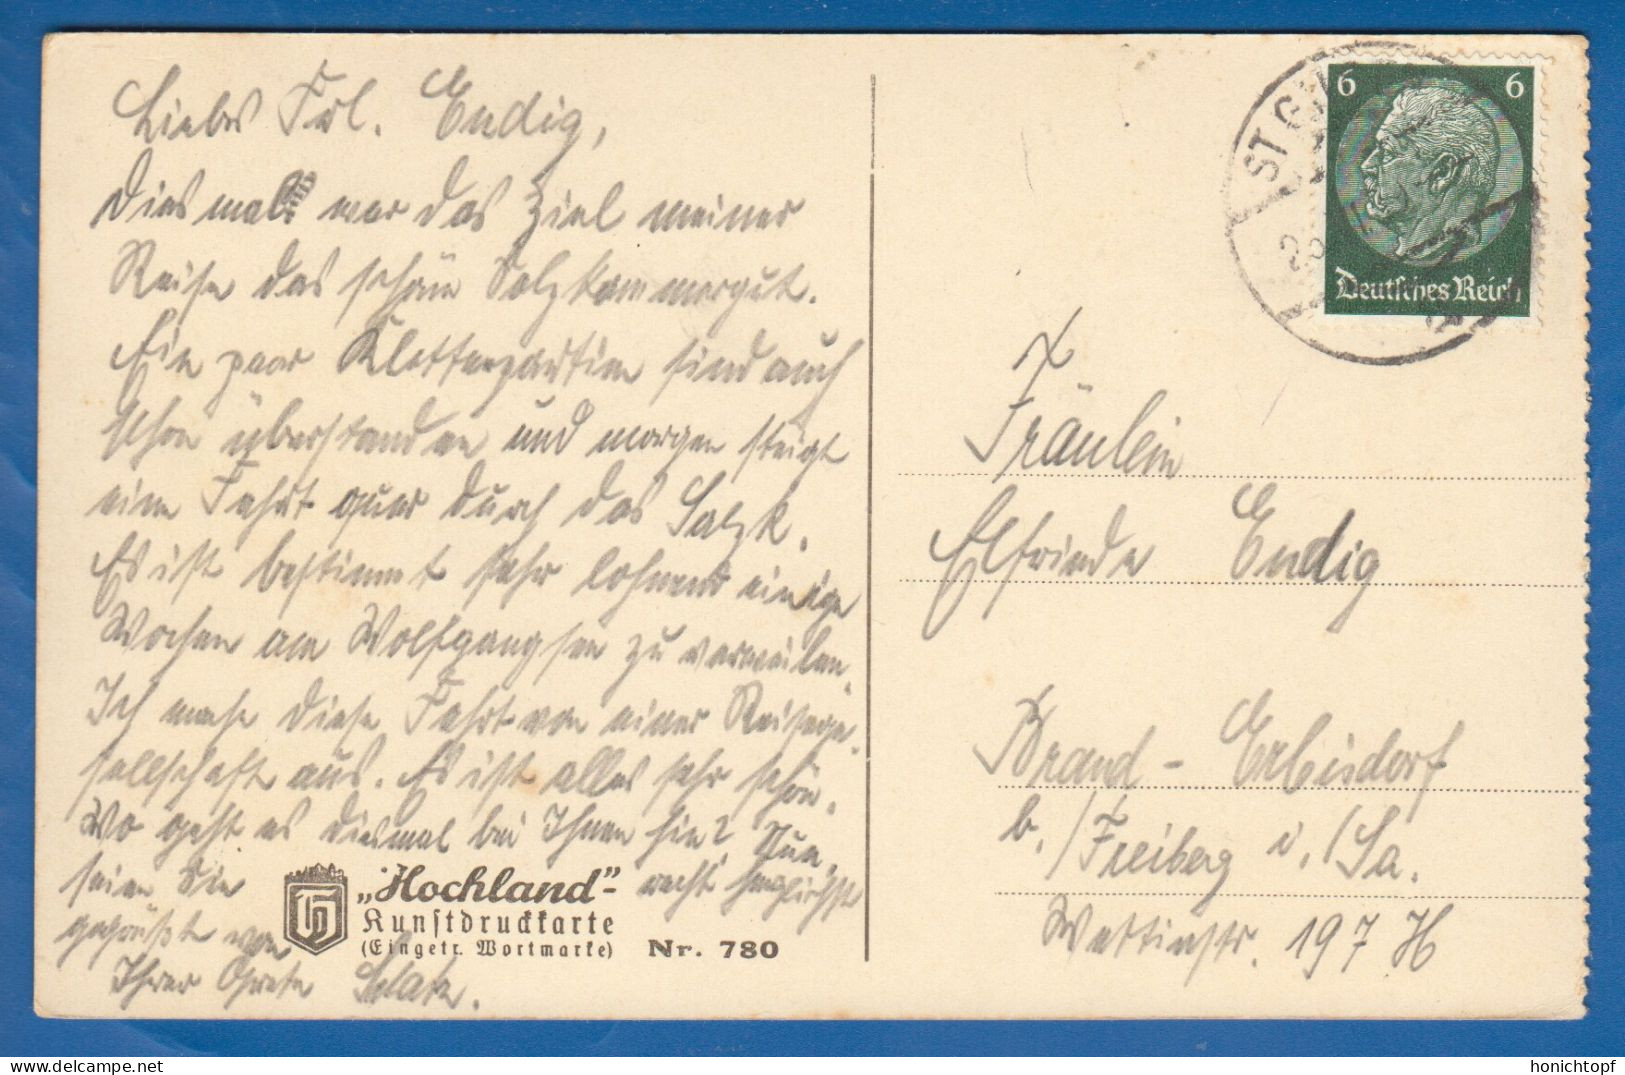 Liebes Frl. Endig,
Diesmal war das Ziel meiner
Reise das schöne Salzkammergut.
Ein paar Kletterpartien sind auch
schon überstanden und morgen steigt
eine Fahrt quer durch das Salzk.
Es ist bestimmt sehr lohnend einige
Wochen am Wolfgangsee zu verweilen.
Ich mache diese Fahrt von einer Reisege-
sellschaft aus. Es ist alles sehr schön.
Wo geht es diesmal bei Ihnen hin? Nun
seien Sie recht herzlichst
gegrüßt von
Ihrer Grete
"Hochland"-
Kunstdruckkarte
(Eingetr. Wortmarke) Nr. 780
6 6
Deutsches Reich
ST.G
Fräulein
Elfriede Endig
Brand-Erbisdorf
b./Freiberg i./Sa.
Wettinstr. 197 H
honichtopf
delcampe.net